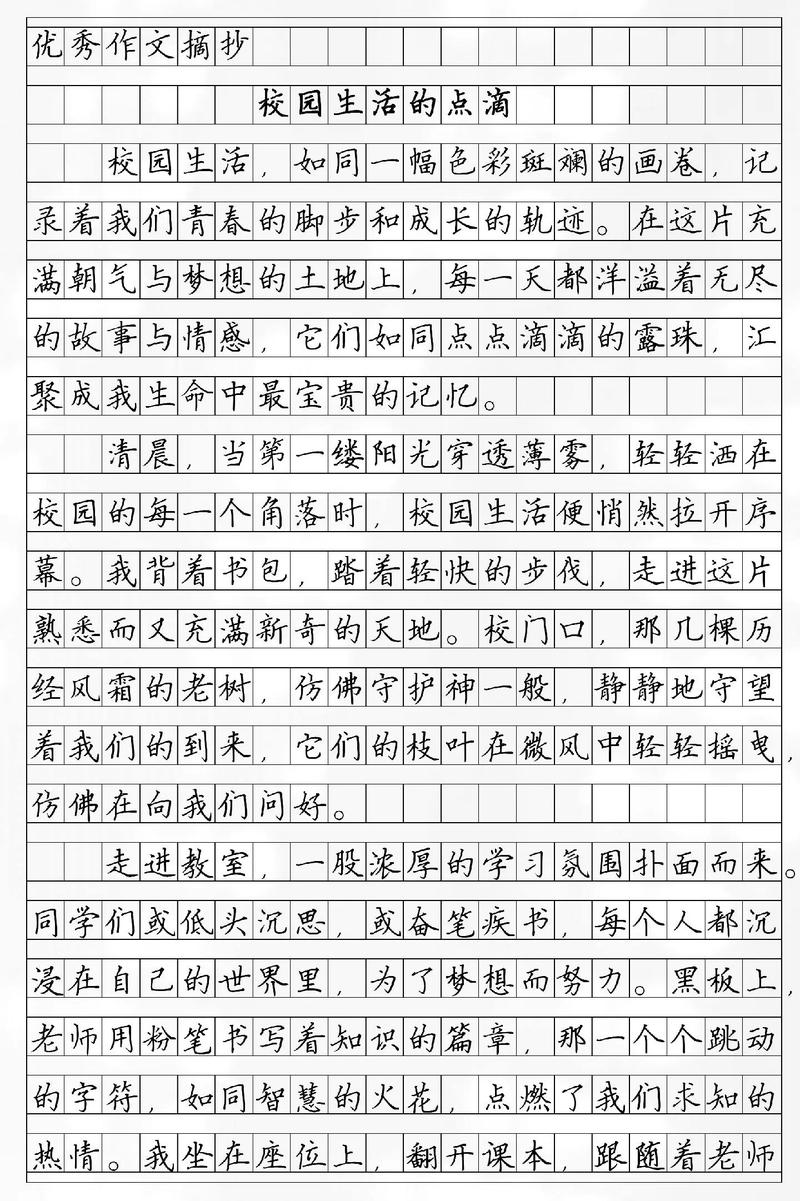 优秀作文摘抄
校园生活的点滴
校园生活，如同一幅色彩斑斓的画卷，记
录着我们青春的脚步和成长的轨迹。在这片充
满朝气与梦想的土地上，每一天都洋溢着无尽
的故事与情感，它们如同点点滴滴的露珠，汇
聚成我生命中最宝贵的记忆。
清晨，当第一缕阳光穿透薄雾，轻轻洒在
校园的每一个角落时，校园生活便悄然拉开序
幕。我背着书包，踏着轻快的步伐，走进这片
熟悉而又充满新奇的天地。校门口，那几棵历
经风霜的老树，仿佛守护神一般，静静地守望
着我们的到来，它们的枝叶在微风中轻轻摇曳，
仿佛在向我们问好。
走进教室，一股浓厚的学习氛围扑面而来。
同学们或低头沉思，或奋笔疾书，每个人都沉
浸在自己的世界里，为了梦想而努力。黑板上，
老师用粉笔书写着知识的篇章，那一个个跳动
的字符，如同智慧的火花，点燃了我们求知的
热情。我坐在座位上，翻开课本，跟随着老师